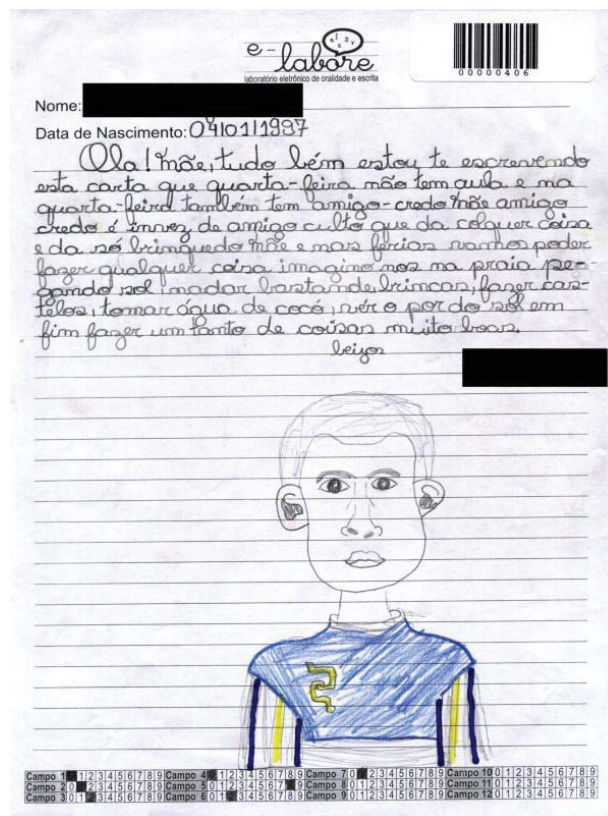 e-labore
laboratório eletrônico de oralidade e escrita
00000406
Nome:
Data de Nascimento: 04/01/1997
Ola! mãe, tudo bém estou te escrevendo
esta carta que quarta-feira não tem aula e na
quarta-feira também tem amigo-credo mãe amigo
credo é invez de amigo culto que da colquer coisa
e da só brinquedo mãe e mas férias vamos poder
fazer qualquer coisa imagino nos na praia pe-
gando sol, nadar bastande, brincar, fazer cas-
telos, tomar água de cocó, vér o por do sol em
fim fazer um tanto de coisas muito boas.
beijos
Campo 1 0 1 2 3 4 5 6 7 8 9 Campo 4 0 1 2 3 4 5 6 7 8 9 Campo 7 0 1 2 3 4 5 6 7 8 9 Campo 10 0 1 2 3 4 5 6 7 8 9
Campo 2 0 1 2 3 4 5 6 7 8 9 Campo 5 0 1 2 3 4 5 6 7 8 9 Campo 8 0 1 2 3 4 5 6 7 8 9 Campo 11 0 1 2 3 4 5 6 7 8 9
Campo 3 0 1 2 3 4 5 6 7 8 9 Campo 6 0 1 2 3 4 5 6 7 8 9 Campo 9 0 1 2 3 4 5 6 7 8 9 Campo 12 0 1 2 3 4 5 6 7 8 9